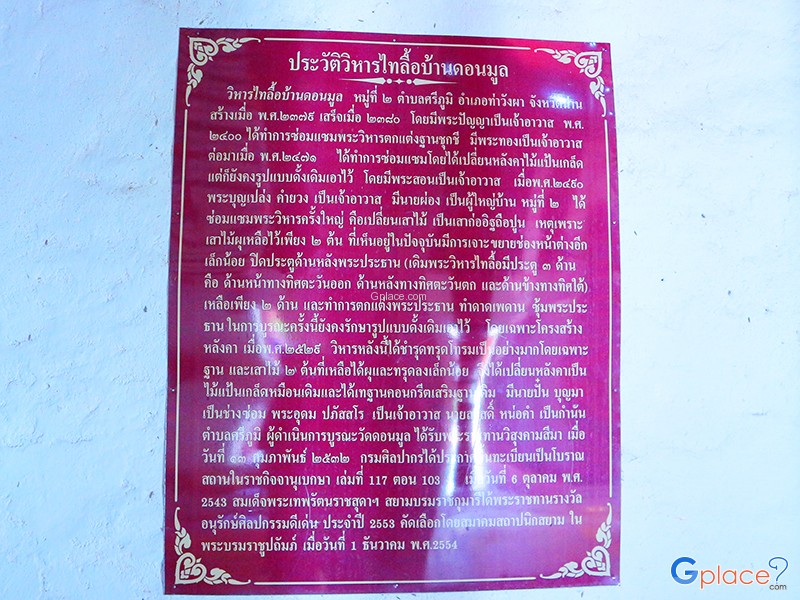 ประวัติวิหารไทลื้อบ้านดอนมูล
วิหารไทลื้อบ้านดอนมูล หมู่ที่ ๒ ตำบลศรีภูมิ อำเภอท่าวังผา จังหวัดน่าน
สร้างเมื่อ พ.ศ.๒๓๗๙ เสร็จเมื่อ ๒๓๘๐ โดยมีพระปัญญาเป็นเจ้าอาวาส พ.ศ.
๒๔๐๐ ได้ทำการซ่อมแซมพระวิหารตกแต่งฐานชุกชี มีพระทองเป็นเจ้าอาวาส
ต่อมาเมื่อ พ.ศ.๒๔๗๑ ได้ทำการซ่อมแซมโดยได้เปลี่ยนหลังคาไม้แป้นเกล็ด
แต่ก็ยังคงรูปแบบดั้งเดิมเอาไว้ โดยมีพระสอนเป็นเจ้าอาวาส เมื่อพ.ศ.๒๔๙๐
พระบุญเปล่ง คำยวง เป็นเจ้าอาวาส มีนายผ่อง เป็นผู้ใหญ่บ้าน หมู่ที่ ๒ ได้
ซ่อมแซมพระวิหารครั้งใหญ่ คือเปลี่ยนเสาไม้ เป็นเสาก่ออิฐถือปูน เหตุเพราะ
เสาไม้ผุเหลือไว้เพียง ๒ ต้น ที่เห็นอยู่ในปัจจุบันมีการเจาะขยายช่องหน้าต่างอีก
เล็กน้อย ปิดประตูด้านหลังพระประธาน (เดิมพระวิหารไทลื้อมีประตู ๓ ด้าน
คือ ด้านหน้าทางทิศตะวันออก ด้านหลังทางทิศตะวันตก และด้านข้างทางทิศใต้)
เหลือเพียง ๒ ด้าน และทำการตกแต่งพระประธาน ทำดาดเพดาน ซุ้มพระประ
ธาน ในการบูรณะครั้งนี้ยังคงรักษารูปแบบดั้งเดิมเอาไว้ โดยเฉพาะโครงสร้าง
หลังคา เมื่อพ.ศ.๒๕๒๙ วิหารหลังนี้ได้ชำรุดทรุดโทรมเป็นอย่างมากโดยเฉพาะ
ฐาน และเสาไม้ ๒ ต้นที่เหลือได้ผุและทรุดลงเล็กน้อย จึงได้เปลี่ยนหลังคาเป็น
ไม้แป้นเกล็ดเหมือนเดิมและได้เทฐานคอนกรีตเสริมฐานเดิม มีนายปั๋น บุญมา
เป็นช่างซ่อม พระอุดม ปภัสสโร เป็นเจ้าอาวาส หน่อคำ เป็นกำนัน
ตำบลศรีภูมิ ผู้ดำเนินการบูรณะวัดดอนมูล ได้รับพระราชทานวิสุงคามสีมา เมื่อ
วันที่ ๑๓ กุมภาพันธ์ ๒๕๓๒ กรมศิลปากรได้ประกาศขึ้นทะเบียนเป็นโบราณ
สถานในราชกิจจานุเบกษา เล่มที่ 117 ตอน 103 เมื่อวันที่ 6 ตุลาคม พ.ศ.
2543 สมเด็จพระเทพรัตนราชสุดาฯ สยามบรมราชกุมารีได้พระราชทานรางวัล
อนุรักษ์ศิลปกรรมดีเด่น ประจำปี 2553 คัดเลือกโดยสมาคมสถาปนิกสยาม ใน
พระบรมราชูปถัมภ์ เมื่อวันที่ 1 ธันวาคม พ.ศ.2554
Gplace.com
Gplace.com